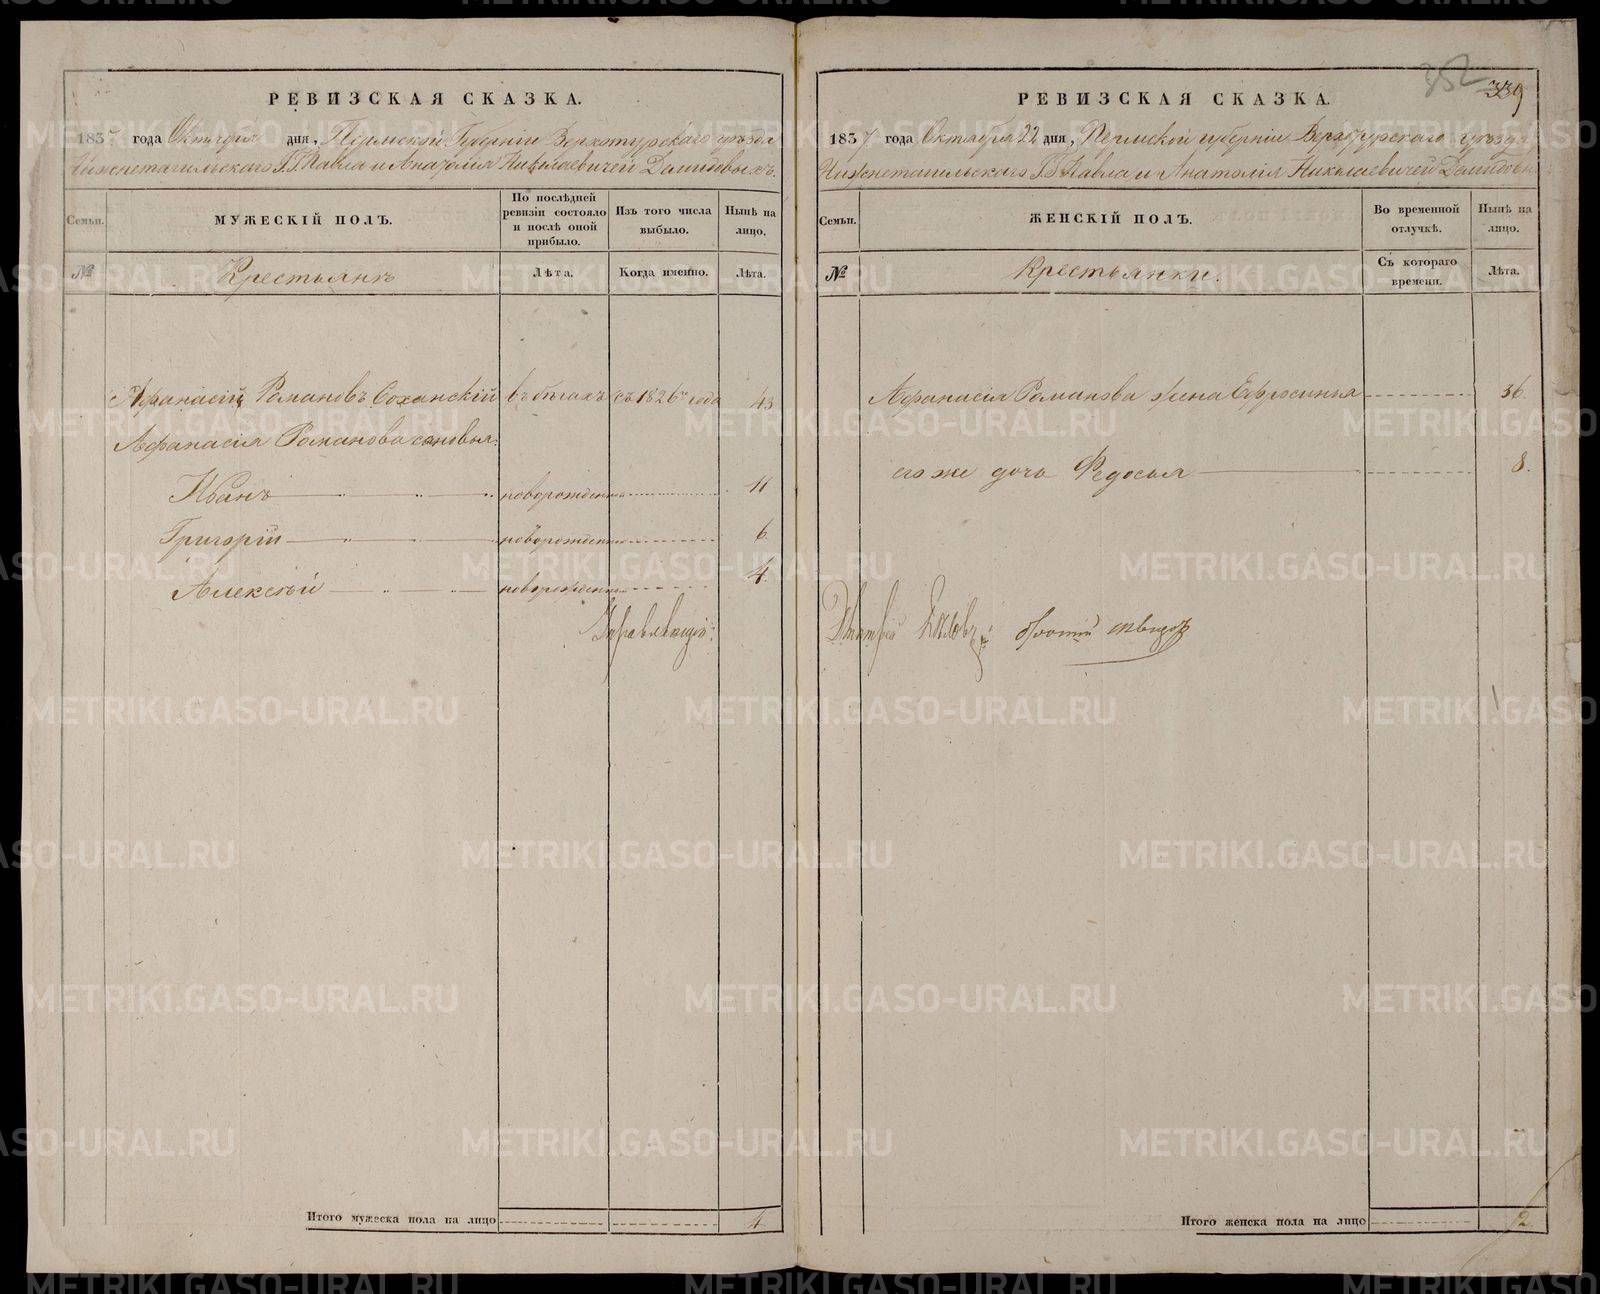 РЕВИЗСКАЯ СКАЗКА.
1837 года Октября дня, Пермской Губернiи Верхотурскаго уѣзда
Нижнетагильскаго Г.Г. Павла и Анатолiя Николаевичей Демидовыхъ.
Семьи.
МУЖЕСКІЙ ПОЛЪ.
По послѣдней ревизіи состояло и послѣ оной прибыло.
Изъ того числа выбыло.
Нынѣ на лицо.
№
Крестьянъ
Лѣта.
Когда именно.
Лѣта.
Афанасiй Романовъ Соханскiй въ бѣгахъ съ 1826 года 43
Афанасiя Романова сыновья:
Иванъ новорожденны 11
Григорiй новорожденны 6
Алексѣй новорожденны 4
Управляющiй
Итого мужеска пола на лицо 4
352
339
РЕВИЗСКАЯ СКАЗКА.
1837 года Октября 22 дня, Пермской губернiи Верхотурскаго уѣзда
Нижнетагильскаго Г.Г. Павла и Анатолiя Николаевичей Демидовы
Семьи.
ЖЕНСКІЙ ПОЛЪ.
Во временной отлучкѣ.
Нынѣ на лицо.
№
Крестьянки.
Съ котораго времени.
Лѣта.
Афанасiя Романова жена Ефросинья 36
его же дочь Федосья 8.
Дмитрiй Бѣловъ
Итого женска пола на лицо 2
METRIKI.GASO-URAL.RU